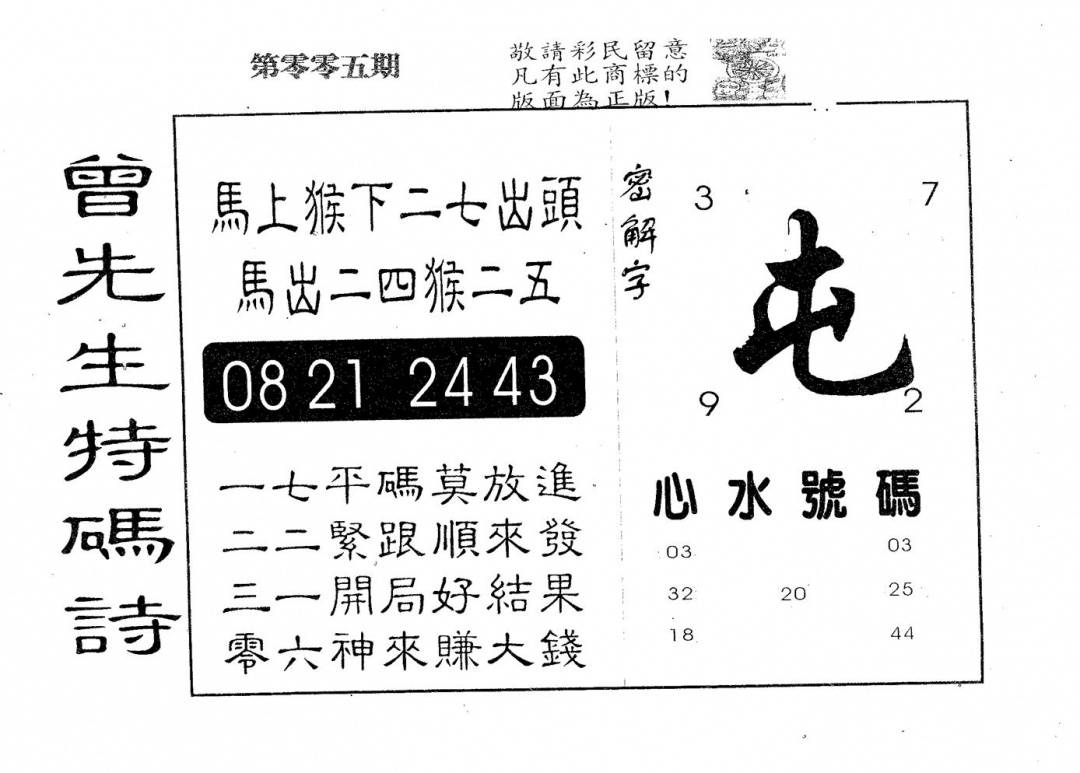 第零零五期
敬請彩民留意
凡有此商標的
版面為正版!
曾先生特碼詩
馬上猴下二七出頭
馬出二四猴二五
08 21 24 43
一七平碼莫放進
二二緊跟順來發
三一開局好結果
零六神來賺大錢
密解字
3 7
屯
9 2
心水號碼
03 03
32 20 25
18 44